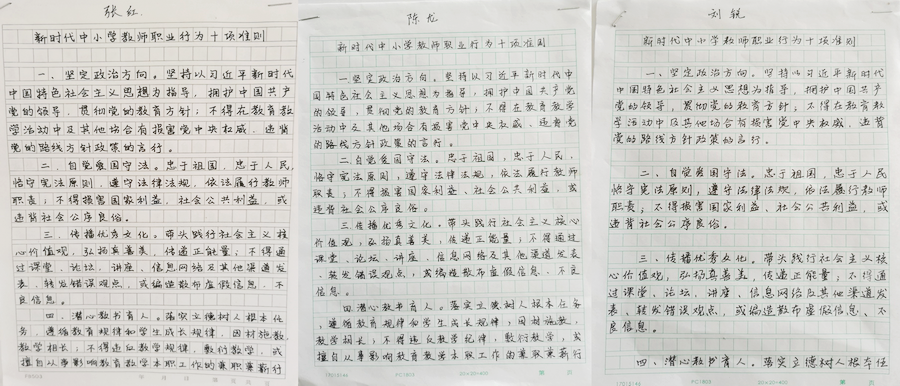 张红
新时代中小学教师职业行为十项准则
一、坚定政治方向。坚持以习近平新时代
中国特色社会主义思想为指导，拥护中国共产
党的领导，贯彻党的教育方针；不得在教育教
学活动中及其他场合有损害党中央权威、违背
党的路线方针政策的言行。
二、自觉爱国守法。忠于祖国，忠于人民，
恪守宪法原则，遵守法律法规，依法履行教师
职责；不得损害国家利益，社会公共利益，或
违背社会公序良俗。
三、传播优秀文化。带头践行社会主义核
心价值观，弘扬真善美，传递正能量；不得通
过课堂、论坛、讲座、信息网络及其他渠道发
表、转发错误观点，或编造散布虚假信息、不
良信息。
四、潜心教书育人。落实立德树人根本任
务，遵循教育规律和学生成长规律，因材施教，
教学相长；不得违反教学纪律，敷衍教学，或
擅自从事影响教育教学本职工作的兼职兼薪行
陈龙
新时代中小学教师职业行为十项准则
一.坚定政治方向。坚持以习近平新时代中
国特色社会主义思想为指导，拥护中国共产党
的领导，贯彻党的教育方针；不得在教育教学
活动中及其他场合有损害党中央权威、违背党
的路线方针政策的言行。
二.自觉爱国守法。忠于祖国，忠于人民，
恪守宪法原则，遵守法律法规，依法履行教师
职责；不得损害国家利益、社会公共利益，或
违背社会公序良俗。
三.传播优秀文化。带头践行社会主义核心
价值观，弘扬真善美，传递正能量；不得通过
课堂、论坛、讲座、信息网络及其他渠道发表
、转发错误观点，或编造散布虚假信息、不良
信息。
四.潜心教书育人。落实立德树人根本任务
，遵循教育规律和学生成长规律，因材施教，
教学相长；不得违反教学纪律，敷衍教学，或
擅自从事影响教育教学本职工作的兼职兼薪行
17D1S146 PC1803 20×20=400 第 页
刘锐
新时代中小学教师职业行为十项准则
一、坚定政治方向。坚持以习近平新时代
中国特色社会主义思想为指导，拥护中国共产
党的领导，贯彻党的教育方针；不得在教育教
学活动中及其他场合有损害党中央权威、违背
党的路线方针政策的言行。
二、自觉爱国守法。忠于祖国，忠于人民，
恪守宪法原则，遵守法律法规，依法履行教师
职责；不得损害国家利益、社会公共利益，或
违背社会公序良俗。
三、传播优秀文化。带头践行社会主义核
心价值观，弘扬真善美，传递正能量；不得通
过课堂、论坛、讲座、信息网络及其他渠道发
表、转发错误观点，或编造散布虚假信息、不
良信息。
四、潜心教书育人。落实立德树人根本任
17D1S146 PC1803 20×20=400 第 页